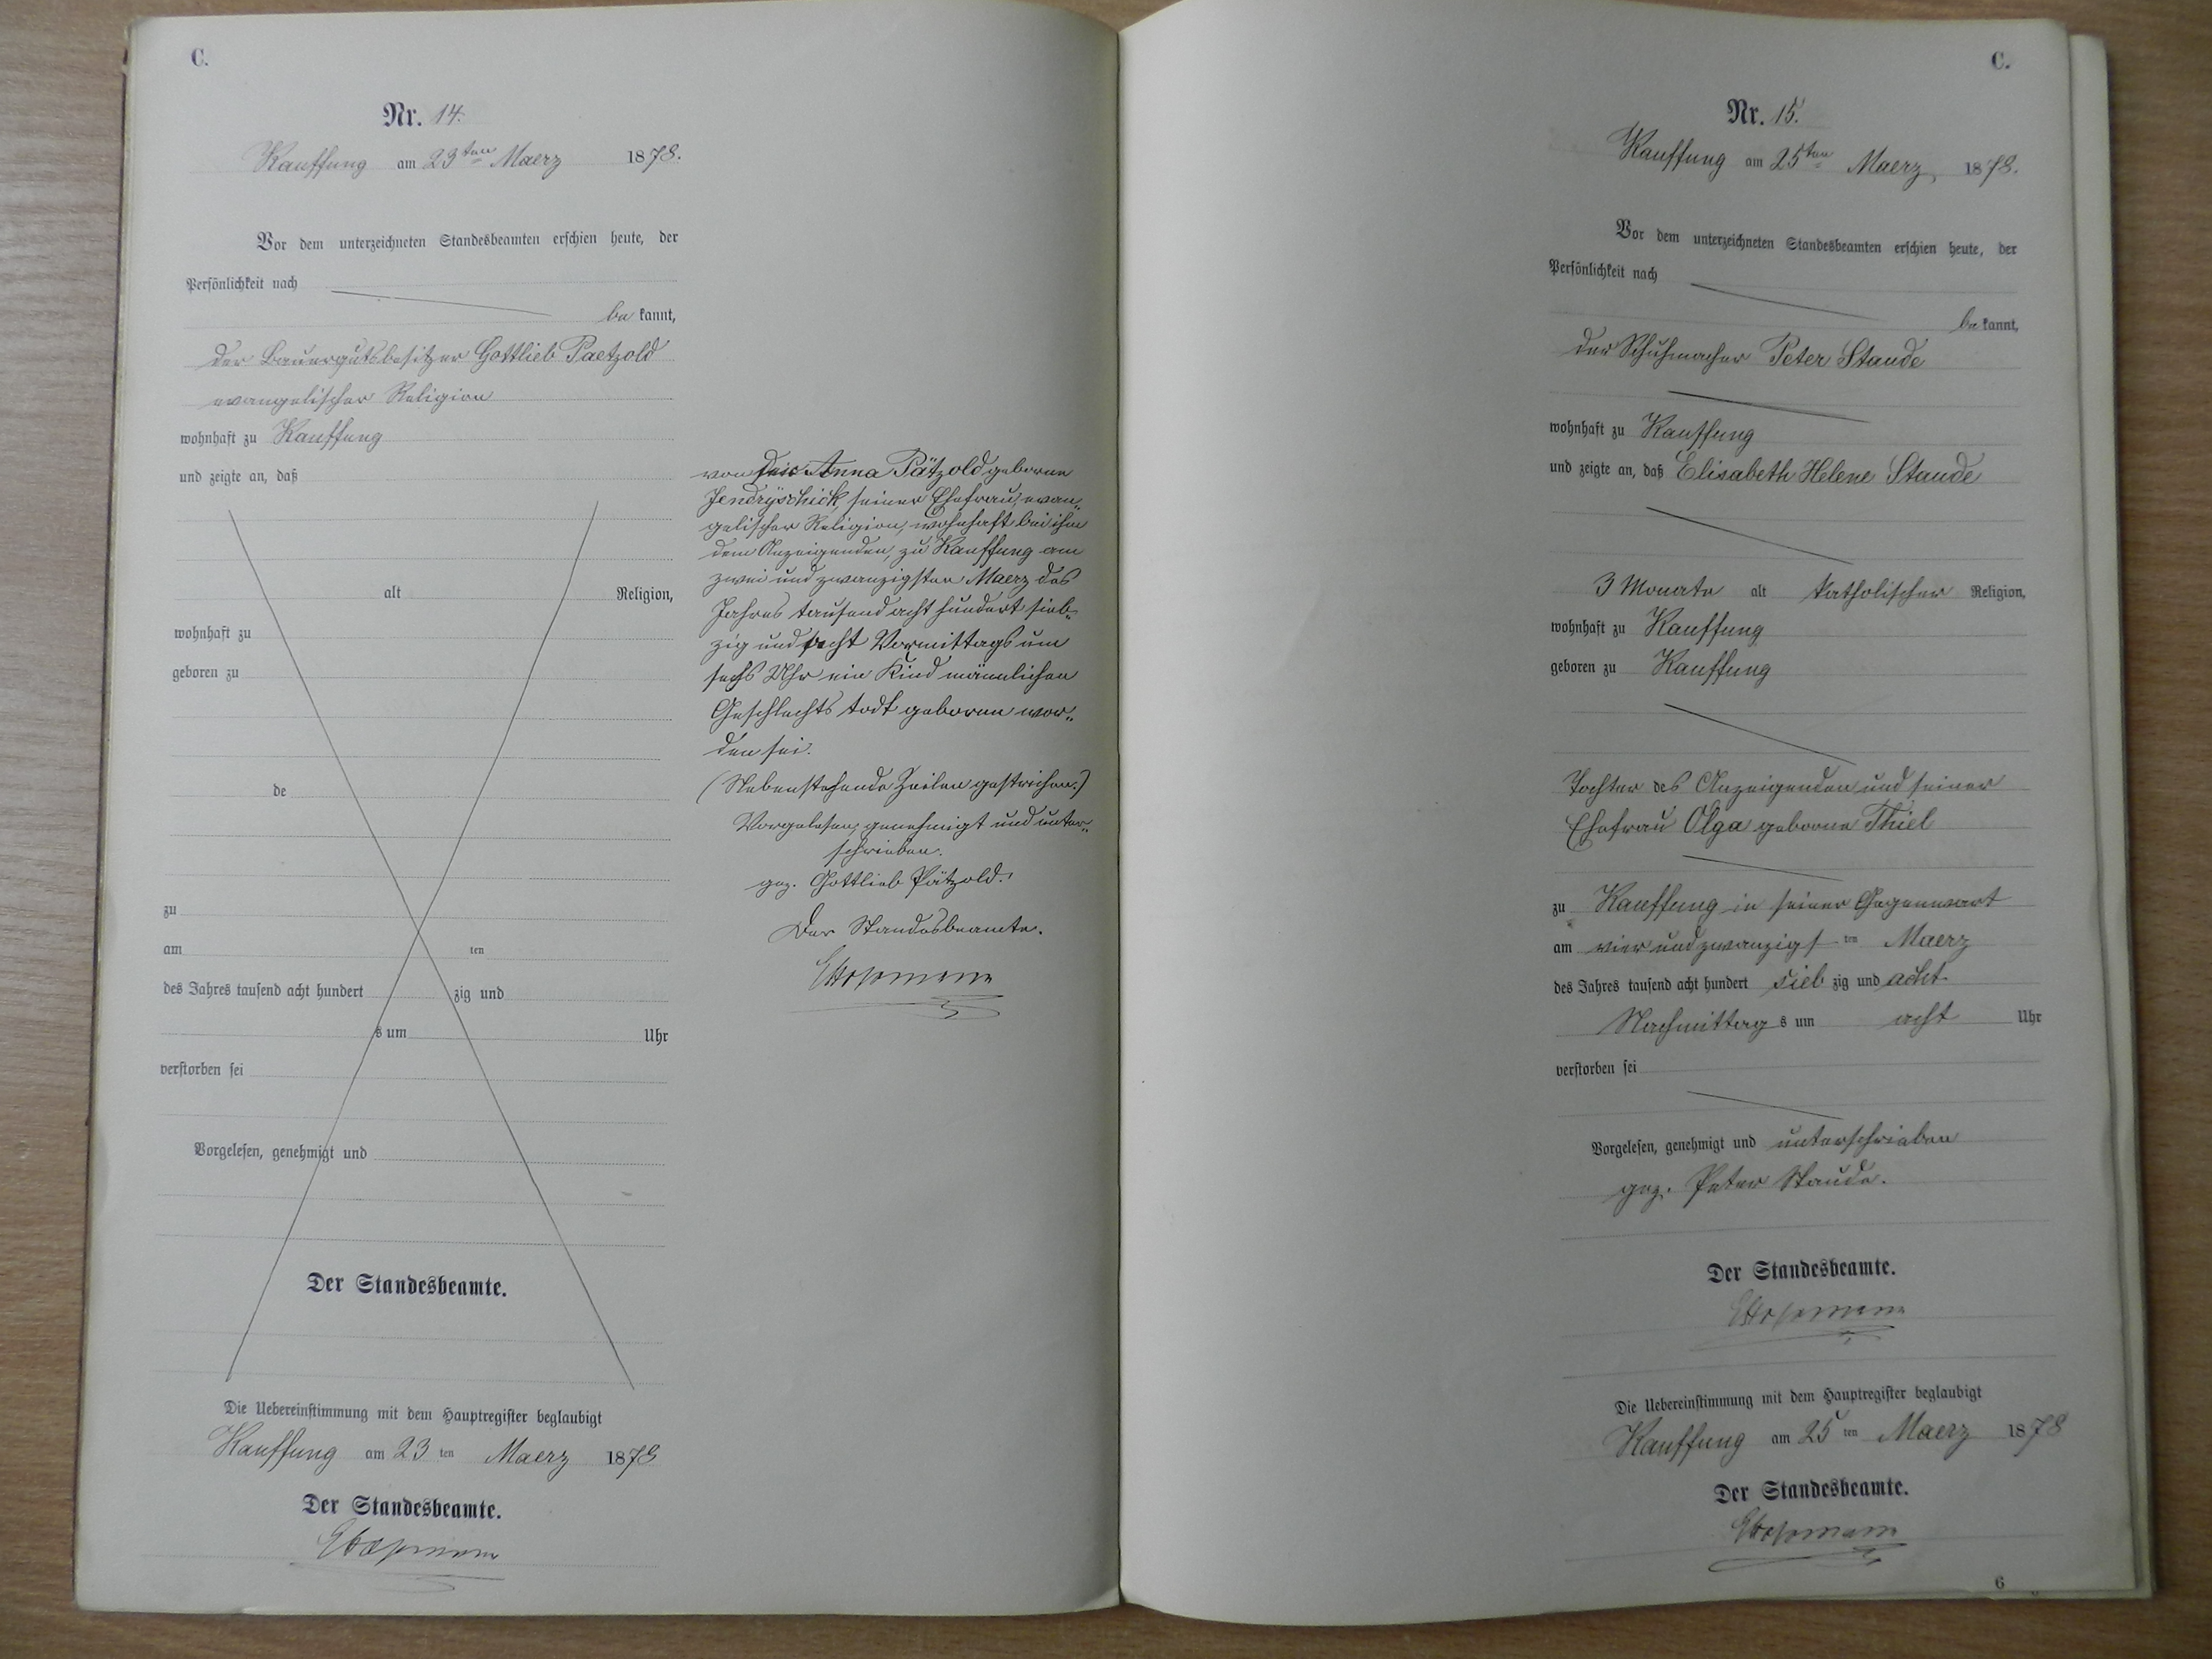 C.
Nr. 14.
Kauffung am 23ten Maerz 1878.
Vor dem unterzeichneten Standesbeamten erschien heute, der
Persönlichkeit nach
be kannt,
der Bauergutsbesitzer Gottlieb Paetzold
evangelischer Religion
wohnhaft zu Kauffung
und zeigte an, daß
alt Religion,
wohnhaft zu
geboren zu
de
zu
am ten
des Jahres tausend acht hundert zig und
s um Uhr
verstorben sei
Vorgelesen, genehmigt und
Der Standesbeamte.
Die Uebereinstimmung mit dem Hauptregister beglaubigt
Kauffung am 23 ten Maerz 1878
Der Standesbeamte.
von Anna Pätzold geborne
Jendryschick, seiner Ehefrau, evan„
gelischer Religion, wohnhaft bei ihm
dem Anzeigenden, zu Kauffung am
zwei und zwanzigsten Maerz des
Jahres tausend acht hundert sieb„
zig und acht Vormittags um
sechs Uhr ein Kind männlichen
Geschlechts todt geboren wor„
den sei.
(Nebenstehende Zeilen gestrichen.)
Vorgelesen, genehmigt und unter„
schrieben.
gez. Gottlieb Pätzold.
Der Standesbeamte.
C.
Nr. 15.
Kauffung am 25ten Maerz 1878.
Vor dem unterzeichneten Standesbeamten erschien heute, der
Persönlichkeit nach
be kannt,
der Schuhmacher Peter Staude
wohnhaft zu Kauffung
und zeigte an, daß Elisabeth Helene Staude
3 Monate alt katholischer Religion,
wohnhaft zu Kauffung
geboren zu Kauffung
Tochter des Anzeigenden und seiner
Ehefrau Olga geborne Thiel
zu Kauffung in seiner Gegenwart
am vier und zwanzigst ten Maerz
des Jahres tausend acht hundert sieb zig und acht
Nachmittag s um acht Uhr
verstorben sei
Vorgelesen, genehmigt und unterschrieben
gez. Peter Staude.
Der Standesbeamte.
Die Uebereinstimmung mit dem Hauptregister beglaubigt
Kauffung am 25 ten Maerz 1878
Der Standesbeamte.
6